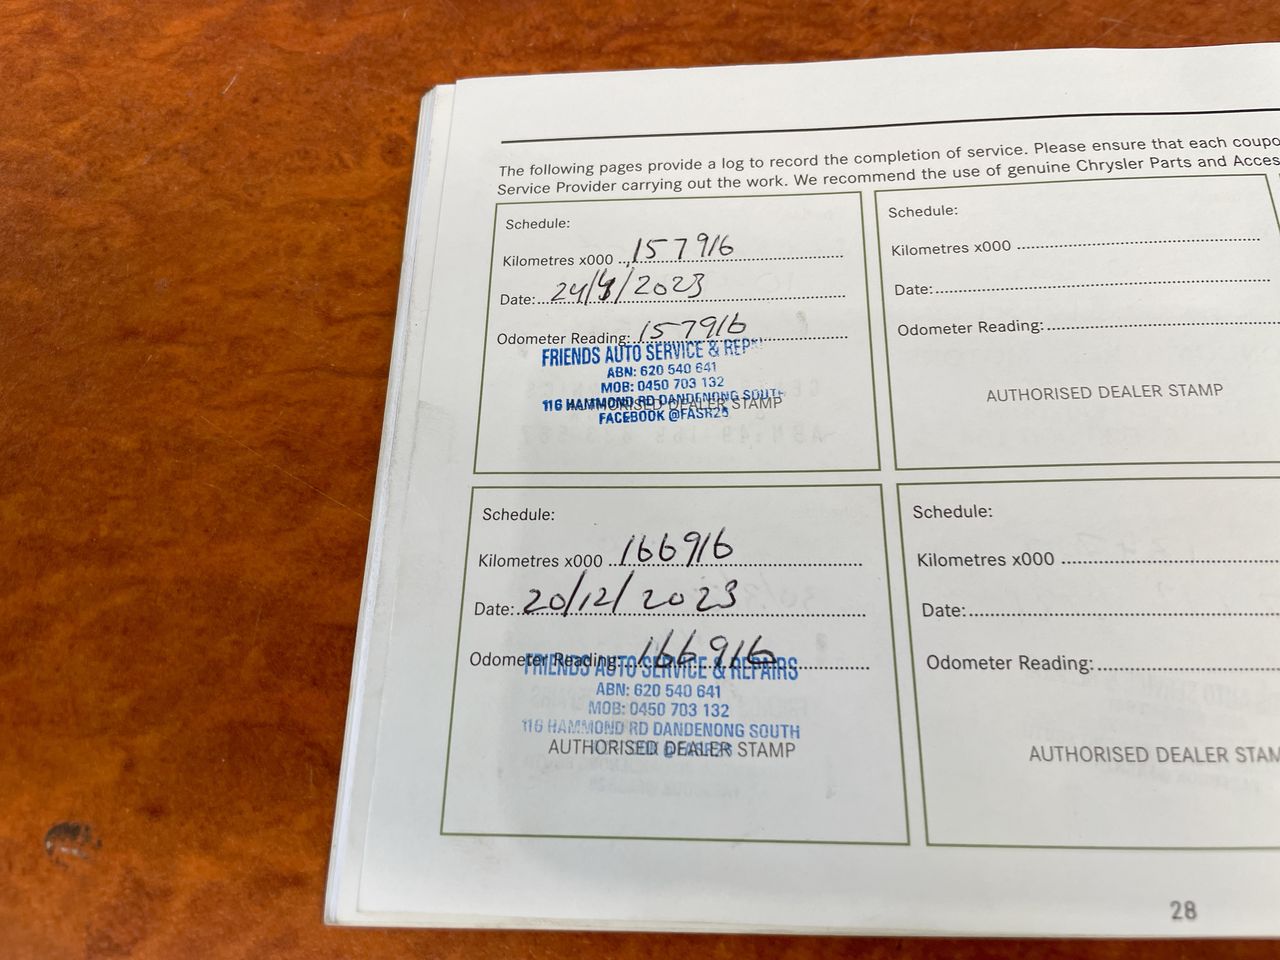 The following pages provide a log to record the completion of service. Please ensure that each coupo
Service Provider carrying out the work. We recommend the use of genuine Chrysler Parts and Acces
Schedule:
Kilometres x000 157916
Date: 24/ /2023
Odometer Reading: 157916
FRIENDS AUTO SERVICE & REP
ABN: 620 540 641
MOB: 0450 703 132
116 HAMMOND RD DANDENONG SOUTH
AUTHORISED DEALER STAMP
FACEBOOK @FASR25
Schedule:
Kilometres x000
Date:
Odometer Reading:
AUTHORISED DEALER STAMP
Schedule:
Kilometres x000 166916
Date: 20/12/2023
Odometer Reading: 166916
FRIENDS AUTO SERVICE & REPAIRS
ABN: 620 540 641
MOB: 0450 703 132
116 HAMMOND RD DANDENONG SOUTH
AUTHORISED DEALER STAMP
Schedule:
Kilometres x000
Date:
Odometer Reading:
AUTHORISED DEALER STAM
28